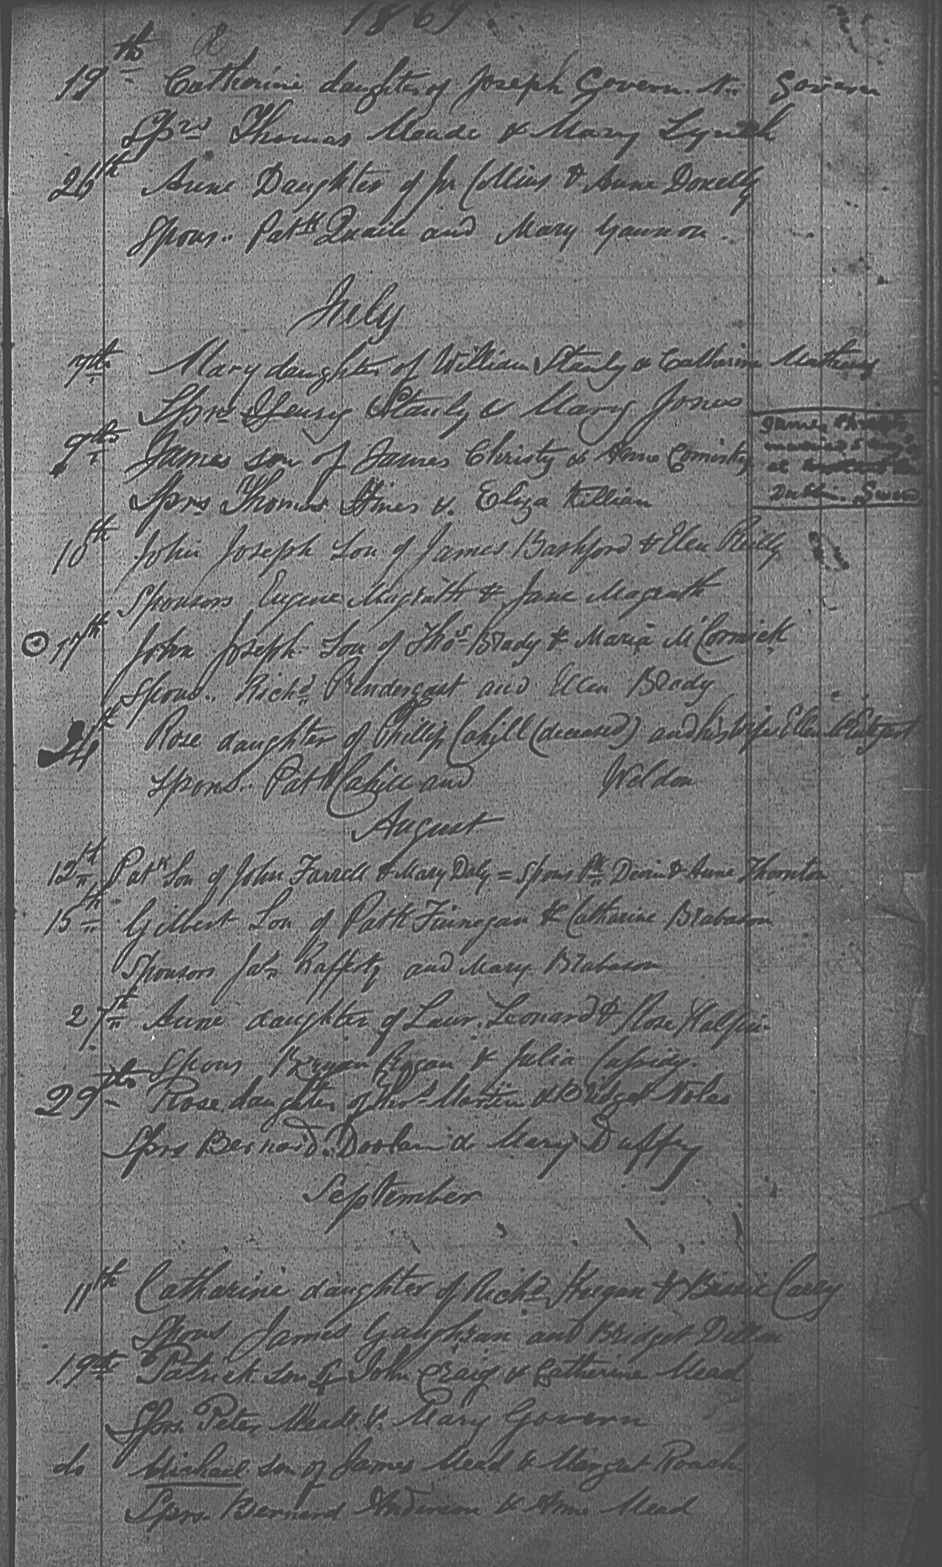 1869
19th Catherine daughter of Joseph Govern Govern
Sprs Thomas Meade & Mary Lynch
26th Anne Daughter of Jn Collins & Anne Donelly
Spons.. Patk Quaile and Mary Gannon
July
7th Mary daughter of William Stanly & Catherine Mathews
Sprs Henry Stanly & Mary Jones
9th James son of James Christy & Anne Comisky
James Christy
married
at
Dublin.
Sprs Thomas Hines & Eliza Killian
10th John Joseph Son of James Bashford & Elen Reilly
Sponsors Eugene Magrath & Jane Magrath
17th John Joseph Son of Thos Brady & Maria McCormick
Spons.. Richd Prendergast and Elen Brady
24th Rose daughter of Phillip Cahill (deceased) and his wife Ellen
Spons.. Patk Cahill and Weldon
August
12th Patk Son of John Farrell & Mary Daly = Spons Pk Devin & Anne Thornton
15th Gilbert Son of Patk Finnegan & Catherine Brabason
Sponsors Jas Rafferty and Mary Brabason
27th Anne daughter of Laur. Leonard & Rose Halpin
Spons Bryan Rogan & Julia
29th Rose daughter of Thos Martin & Bridget
Sprs Bernard & Mary Duffy
September
11th Catharine daughter of Richd Hugan & Carey
Spons James Gaughran and Bridget Dillon
19th Patrick son of John Craig & Catherine Mead
Sprs. Peter Meade & Mary Govern
do Michael son of James Mead & Margret Roach
Sprs. Bernard Anderson & Anne Mead